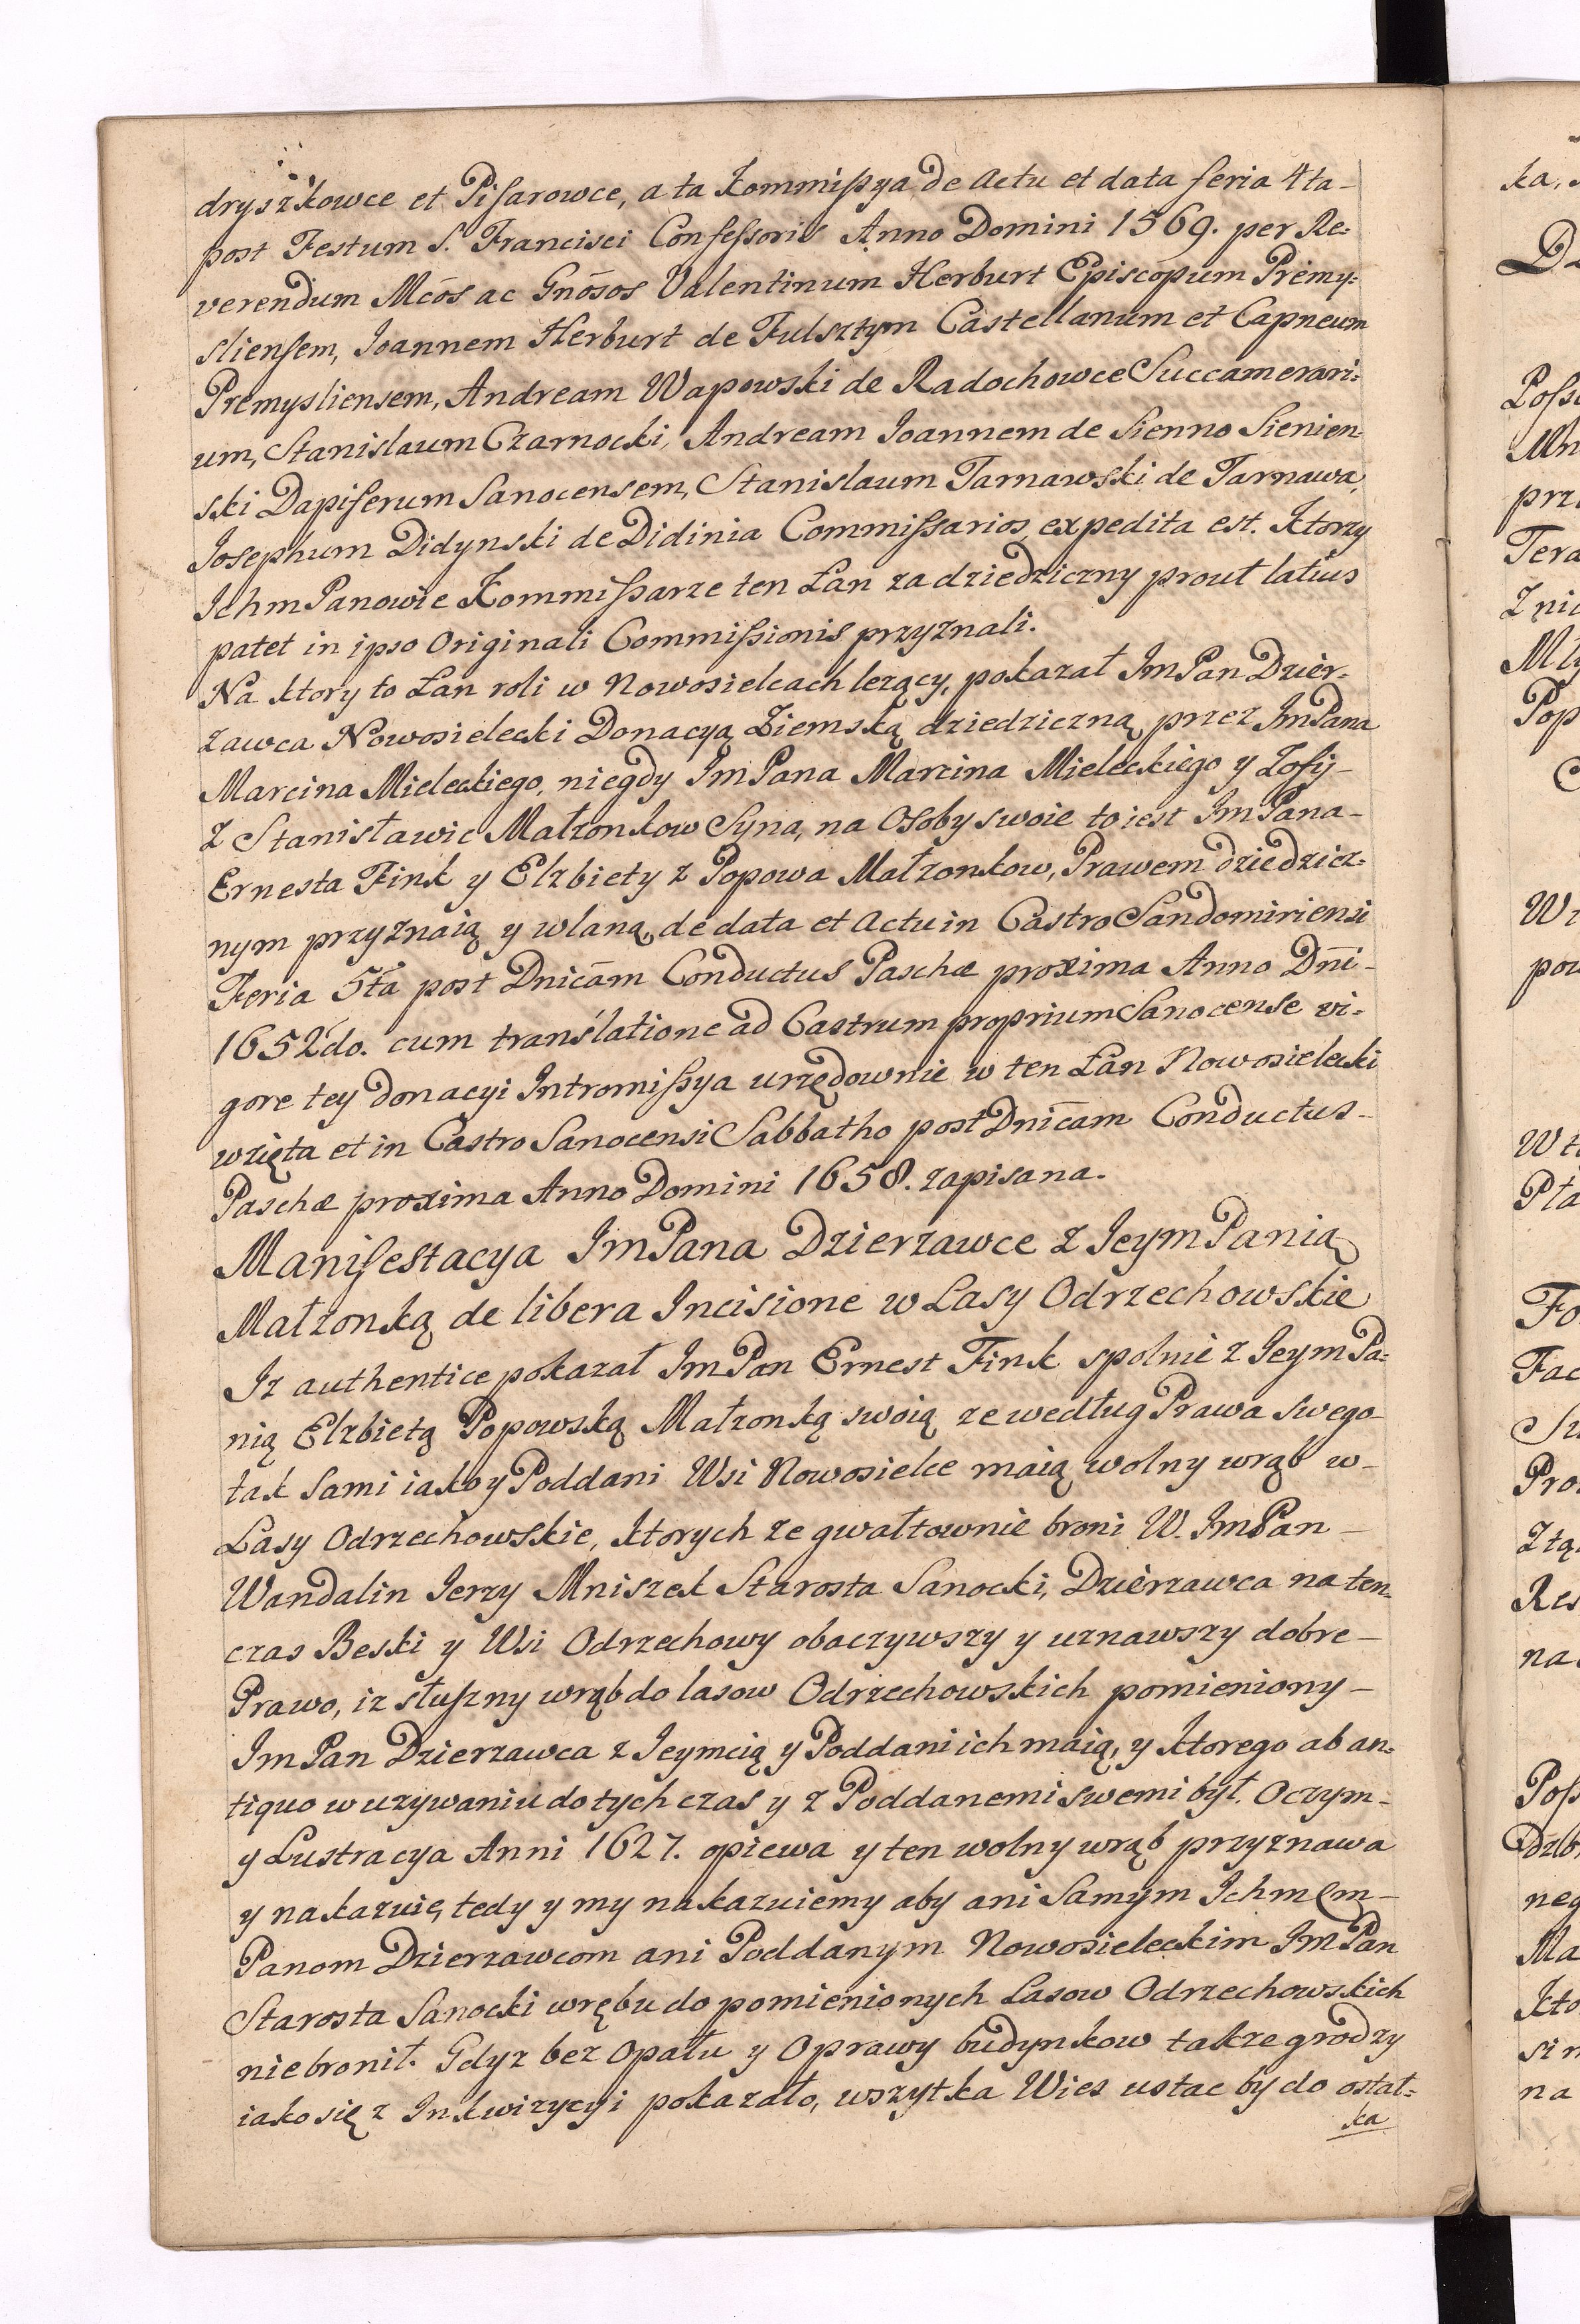 dryszkowce et Pisarowce, a ta Kommissya de Actu et data feria 4ta-
post Festum S. Francisci Confessoris Anno Domini 1569. per Re=
verendum Mcōs ac Gnōsos Valentinum Herburt Episcopum Premy=
sliensem, Joannem Herburt de Fulsztym Castellanum et Capneum
Premysliensem, Andream Wapowski de Radochowce Succamerari=
um, Stanislaum Czarnocki, Andream Joannem de Sienno Sienien=
ski Dapiferum Sanocensem, Stanislaum Tarnawski de Tarnawa,
Josephum Didynski de Didinia Commissarios, expedita est. Ktorzy
Ichm Panowie Kommissarze ten Łan za dziedziczny prout latius
patet in ipso Originali Commissionis przyznali.
Na ktory to Łan roli w Nowosielcach lezący, pokazał Jm Pan Dzier=
zawca Nowosielecki Donacyą Ziemską dziedziczną przez Jm Pana
Marcina Mieleckiego, niegdy Jm Pana Marcina Mieleckiego y Zofij-
z Stanisławic Małzonkow Syna, na Osoby swoie to iest Jm Pana-
Ernesta Fink y Elzbiety z Popowa Małzonkow, Prawem dziedzicz=
nym przyznaią y wlaną, de data et Actu in Castro Sandomiriensi
Feria 5ta post Dnicām Conductus Paschæ proxima Anno Dn̄i-
1652do. cum translatione ad Castrum proprium Sanocense vi=
gore tey donacyi Intromissya urzędownie w ten Łan Nowosielecki
wzięta et in Castro Sanocensi Sabbatho post Dnicām Conductus-
Paschæ proxima Anno Domini 1658. zapisana.
Manifestacya Jm Pana Dzierzawce z Jeym Panią
Małzonką de libera Incisione w Lasy Odrzechowskie
Iz authentice pokazał Jm Pan Ernest Fink spolnie z Jeym Pa=
nią Elzbietą Popowską Małzonką swoią ze według Prawa swego-
tak sami iako y Poddani Wsi Nowosielce maią wolny wrąb w-
Lasy Odrzechowskie, ktorych ze gwałtownie broni W. Jm Pan-
Wandalin Jerzy Mniszek Starosta Sanocki, Dzierzawca na ten=
czas Beski y Wsi Odrzechowy obaczywszy y uznawszy dobre-
Prawo, iz słuszny wrąb do lasow Odrzechowskich pomieniony-
Jm Pan Dzierzawca z Jeymcią y Poddani ich maią, y ktorego ab an=
tiquo w uzywaniu do tych czas y z Poddanemi swemi był. O czym-
y Lustracya Anni 1627. opiewa y ten wolny wrąb przyznawa
y nakazuie, tedy y my nakazuiemy aby ani Samym Ichmcm-
Panom Dzierzawcom ani Poddanym Nowosieleckim Jm Pan
Starosta Sanocki wrębu do pomienionych Lasow Odrzechowskich
nie bronił. Gdyz bez Opału y Oprawy budynkow takze grodzy
iako się z Inkwizycyi pokazało, wszytka Wies ustac by do ostat=
ka